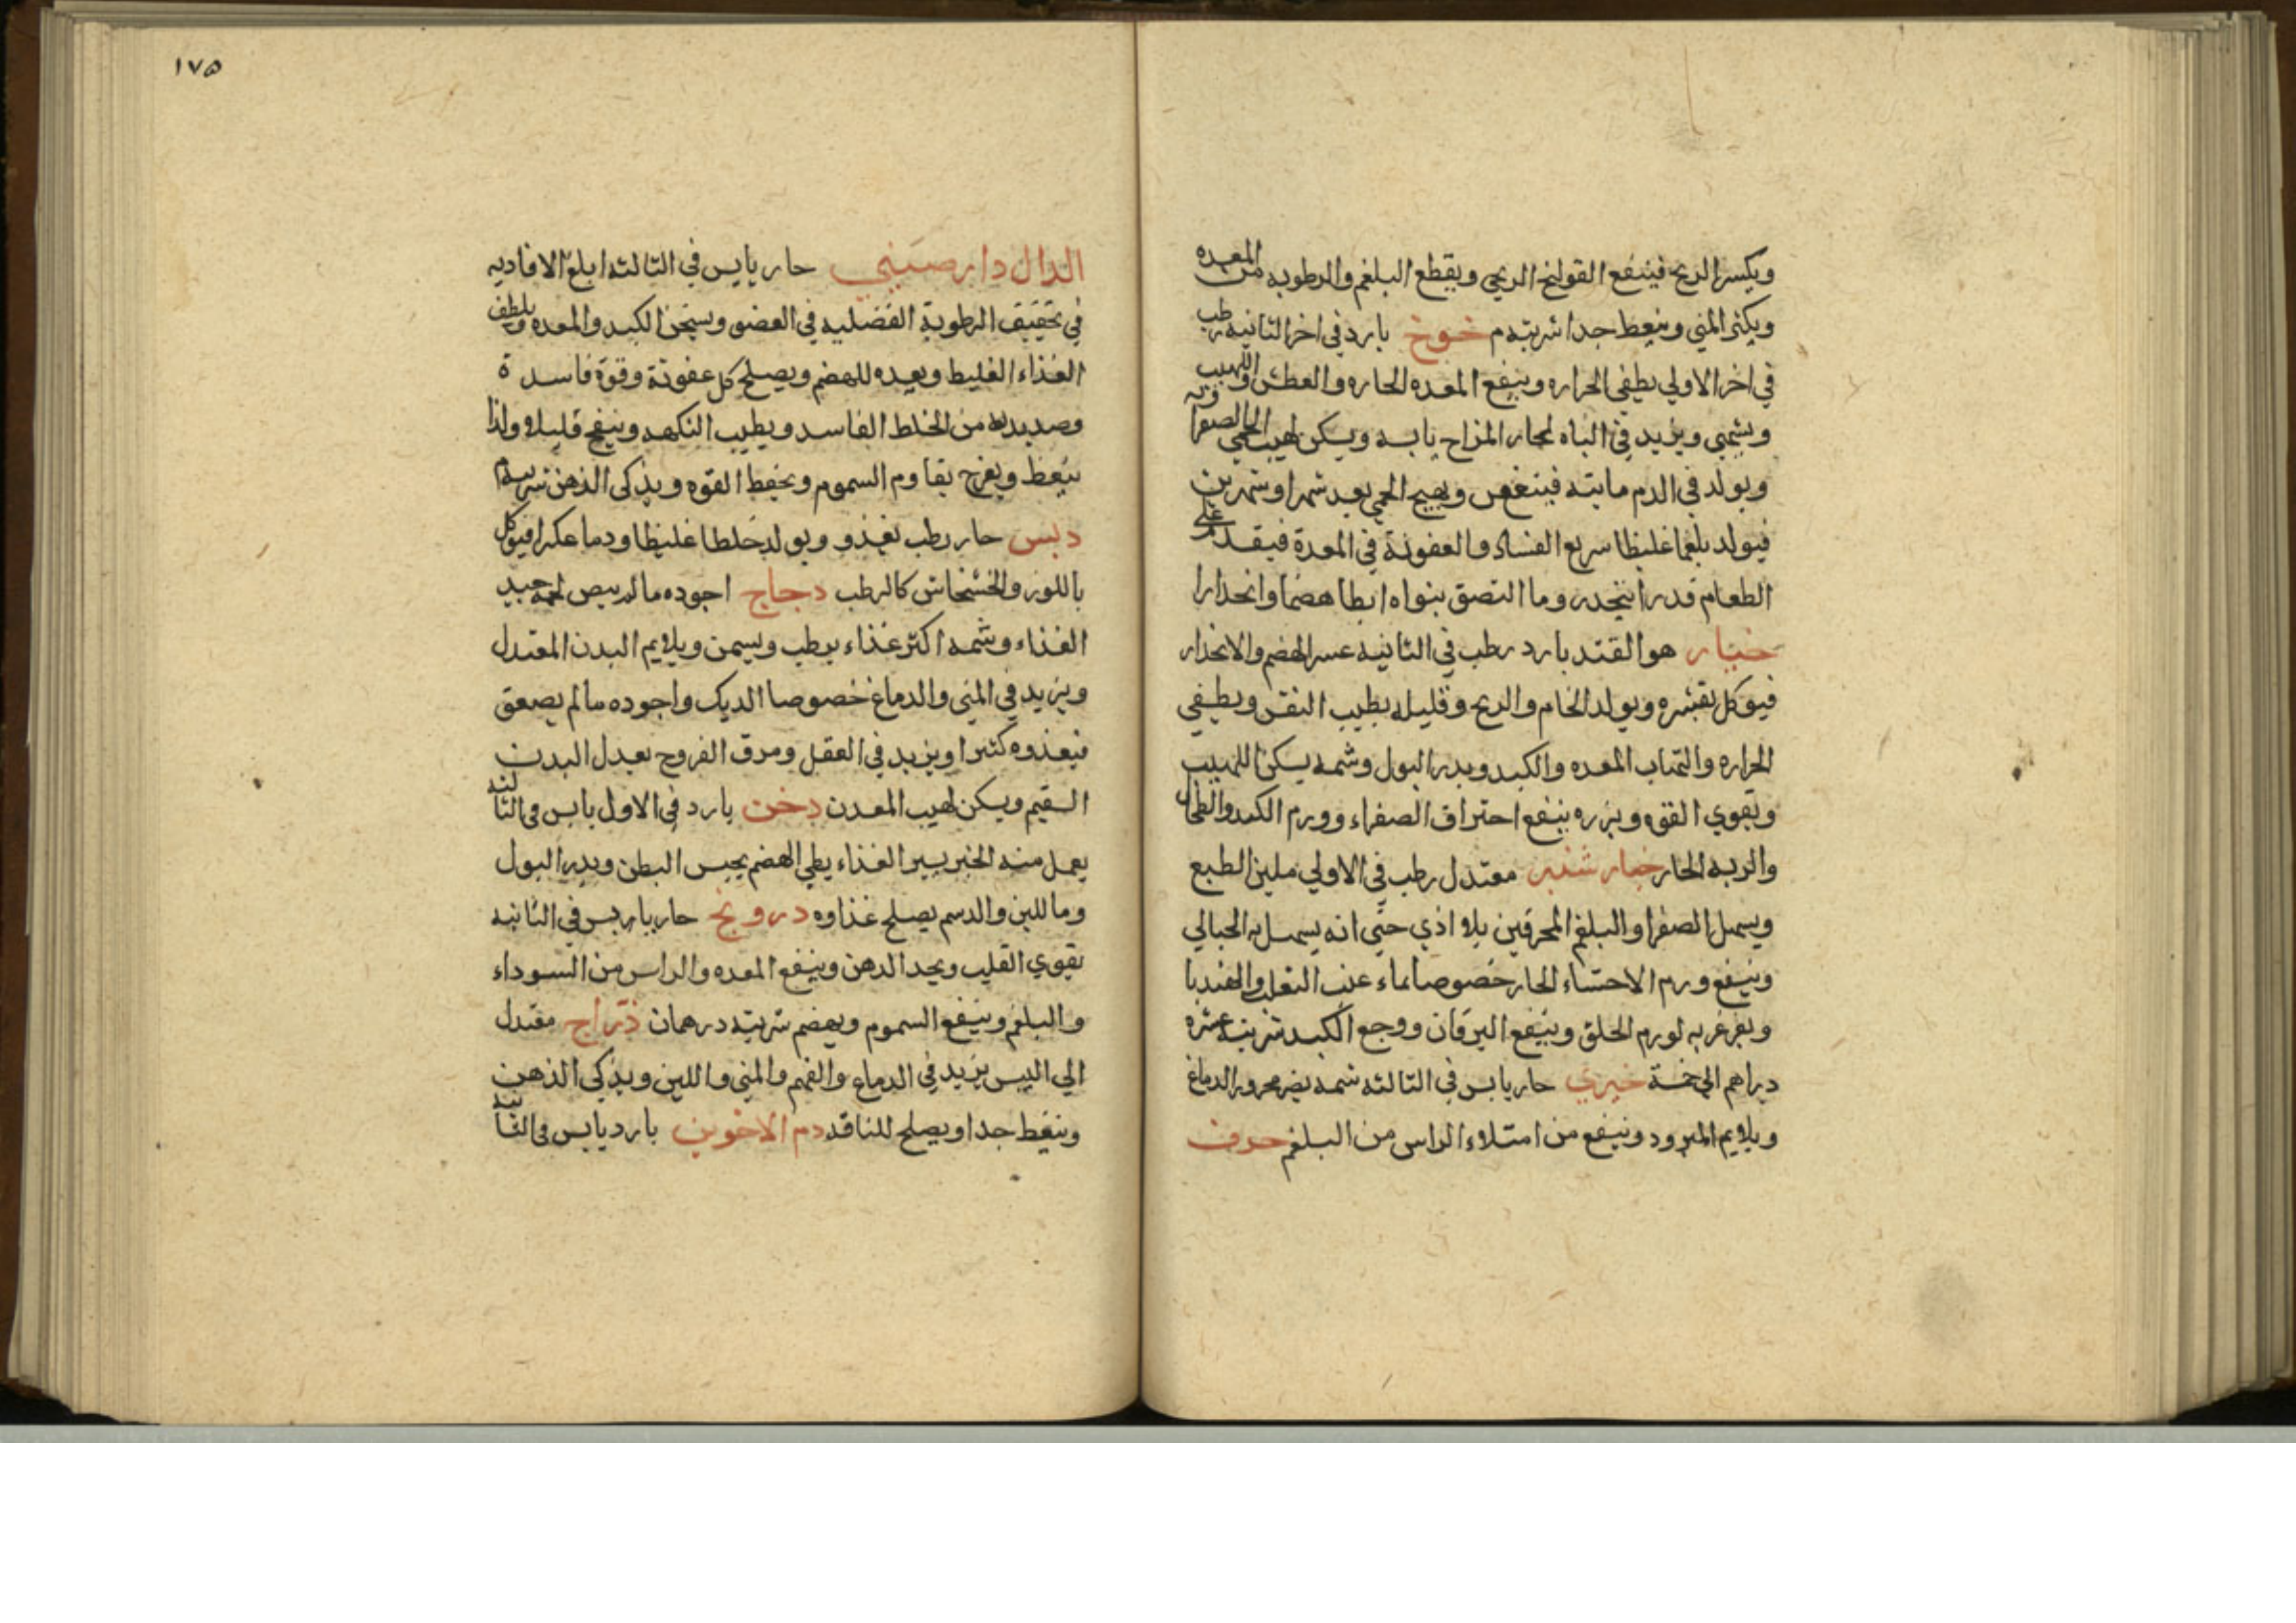 ويكسر الريح فينفع القولنج الريحي ويقطع البلغم والرطوبه من المعده
ويكثر المني وينعظ جدا شربته م خوخ بارد في اخر الثانيه رطب
في اخر الاولي يطفي الحراره وينفع المعده الحاره والعطش واللهيب
ويشهي ويزيد في الباه لحار المزاج يابسه ويسكن لهيب الحمي الصفراويه
ويولد في الدم مايته فيتعفن ويهيج الحمي بعد شهر او شهرين
فيولد بلغما غليظا سريع الفساد والعفونة في المعدة فيقدم علي
الطعام قدر اينحدر وما التصق بنواه ابطا هضما وانحدارا
خيار هو القتد بارد رطب في الثانيه عسر الهضم والانحدار
فيوكل بقشره ويولد الخام والريح وقليله يطيب النفس ويطفي
الحراره والتهاب المعده والكبد ويدر البول وشمه يسكن اللهيب
وتقوي القوه وبزره ينفع احتراق الصفراء وورم الكبد والطحال
والريه الحار خيار شنبر معتدل رطب في الاولي ملين الطبع
ويسهل الصفرا والبلغم المحرقين بلا اذي حتي انه يسهل به الحبالي
وينفع ورم الاحشاء الحار خصوصا بماء عنب الثعلب والهنديا
ويغرغر به لورم الحلق وينفع اليرقان ووجع الكبد شربته عشره
دراهم الي خمسة خيري حار يابس في الثالثه شمه يضر محرور الدماغ
ويلايم المبرود وينفع من امتلاء الراس من البلغم حرف
١٧٥
الدال دار صيني حار يابس في الثالثه ابلغ الافاديه
في تحفيف الرطوبة الفضليه في العضو ويسخن الكبد والمعده ويلطف
الغذاء الغليظ ويعده للهضم ويصلح كل عفونة وقوة فاسدة
وصديديه من الخلط الفاسد ويطيب النكهه وينفخ قليلا ولذا
ينعظ ويفرح يقاوم السموم ويحفظ القوه ويذكي الذهن شربته
دبس حار رطب يغذو ويولد خلطا غليظا ودما عكرا فيوكل
باللوز والخشخاش كالرطب دجاج اجوده ما لم يبيض لحمه جيد
الغذاء وشحمه اكثر غذاء يرطب ويسمن ويلايم البدن المعتدل
ويزيد في المني والدماغ خصوصا الديك واجوده ما لم يصعق
فيغذوه كثيرا ويزيد في العقل ومرق الفروج يعدل البدن
السقيم ويسكن لهيب المعدن دخن بارد في الاول يابس في الثالثه
يعمل منه الخبز يسير الغذاء بطي الهضم يحبس البطن ويدر البول
وما للبن والدسم يصلح غذاوه درونج حار يابس في الثانيه
يقوي القلب ويحد الدهن وينفع المعده والراس من السوداء
والبلغم وينفع السموم ويهضم شربته درهمان دراج معتدل
الي اليبس يزيد في الدماغ والفهم والمني واللبن ويذكي الذهن
وينعظ جدا ويصلح للناقه دم الاخوين بارد يابس في الثانيه